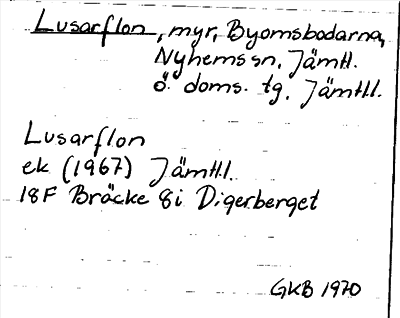 Lusarflon, myr, Byomsbodarna,
Nyhems sn, Jämtl.
ö. doms. tg, Jämtll.
Lusarflon
ek (1967) Jämtll.
18F Bräcke 8i Digerberget
GKB 1970